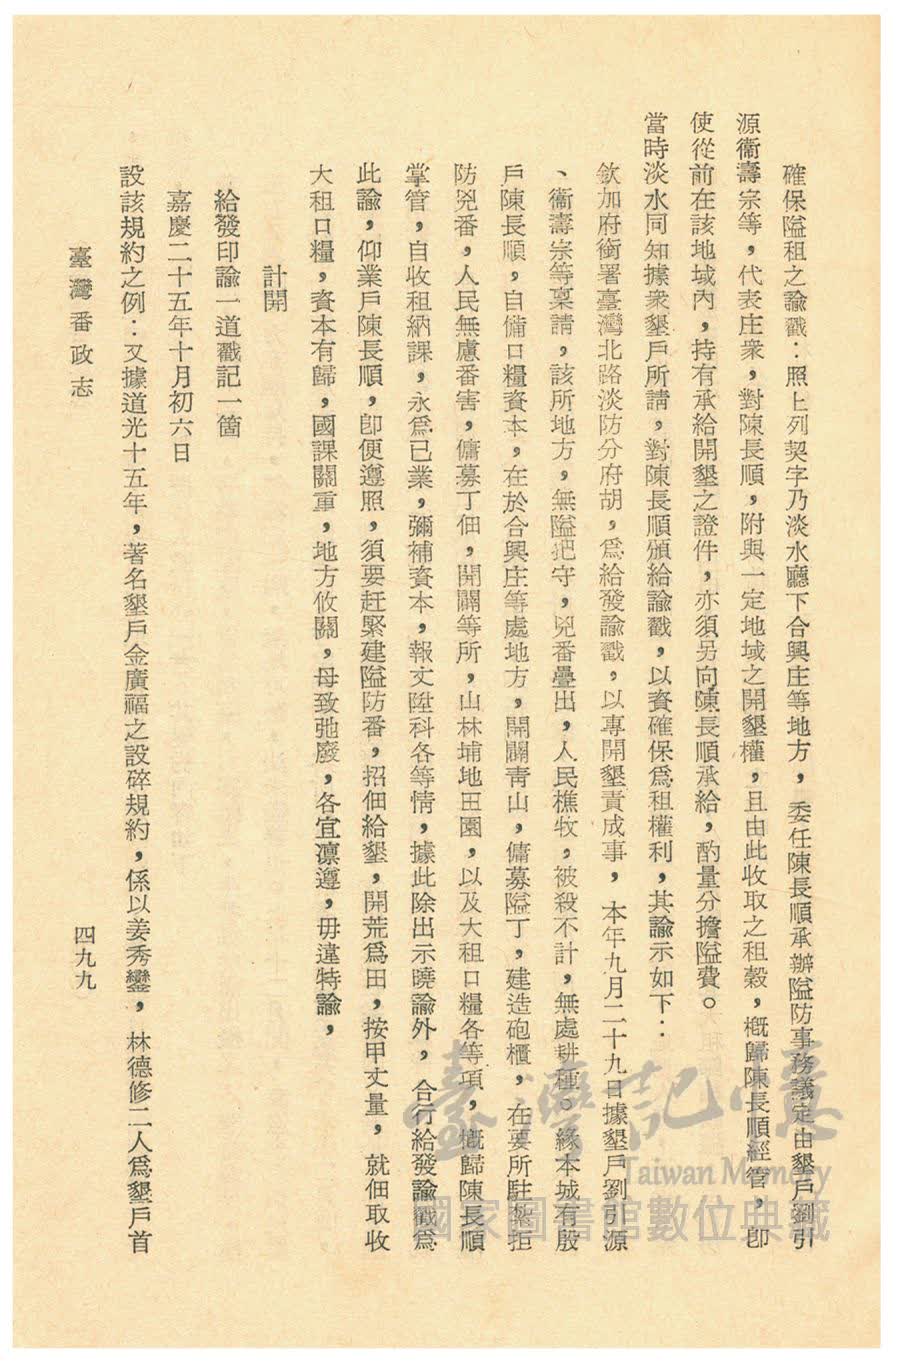 確保隘租之諭戳：照上列契字乃淡水廳下合興庄等地方，委任陳長順承辦隘防事務議定由墾戶劉引
源衞壽宗等，代表庄衆，對陳長順，附與一定地域之開墾權，且由此收取之租穀，概歸陳長順經管，卽
使從前在該地域內，持有承給開墾之證件，亦須另向陳長順承給，酌量分擔隘費。
當時淡水同知據衆墾戶所請，對陳長順頒給諭戳，以資確保爲租權利，其諭示如下：
欽加府銜署臺灣北路淡防分府胡，爲給發諭戳，以專開墾責成事，本年九月二十九日據墾戶劉引源
、衞壽宗等稟請，該所地方，無隘把守，兇番疊出，人民樵牧，被殺不計，無處耕種。緣本城有殷
戶陳長順，自備口糧資本，在於合興庄等處地方，開闢靑山，傭募隘丁，建造砲櫃，在要所駐紮拒
防兇番，人民無慮番害，傭募丁佃，開闢等所，山林埔地田園，以及大租口糧各等項，概歸陳長順
掌管，自收租納課，永爲已業，彌補資本，報文陞科各等情，據此除出示曉諭外，合行給發諭戳爲
此諭，仰業戶陳長順，卽便遵照，須要赶緊建隘防番，招佃給墾，開荒爲田，按甲丈量，就佃取收
大租口糧，資本有歸，國課關重，地方攸關，母致弛廢，各宜凛遵，毋違特諭，
計開
給發印諭一道戳記一箇
嘉慶二十五年十月初六日
設該規約之例：又據道光十五年，著名墾戶金廣福之設碎規約，係以姜秀鑾，林德修二人爲墾戶首
臺灣番政志
四九九
臺灣記憶
Taiwan Memory
國家圖書館數位典藏